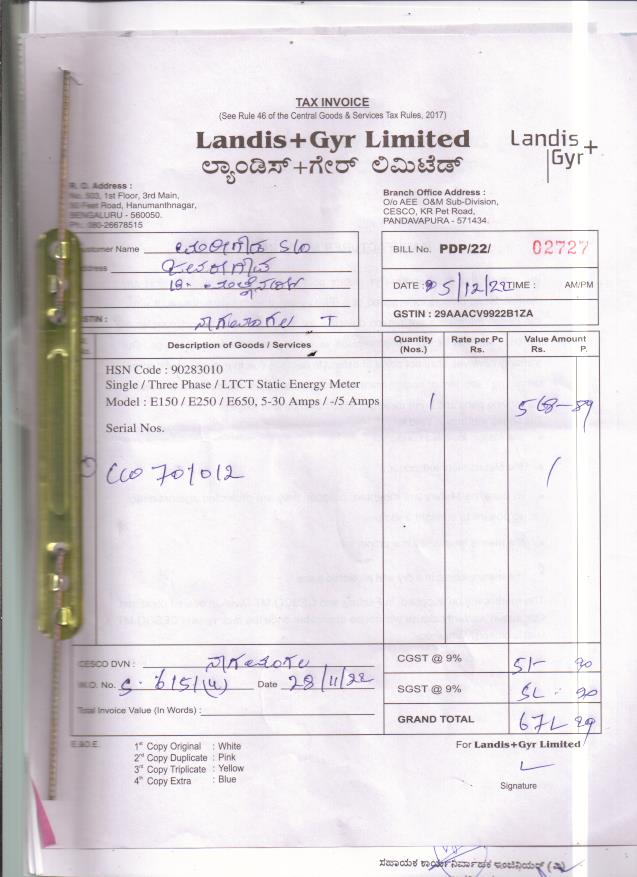 TAX INVOICE
(See Rule 46 of the Central Goods & Services Tax Rules, 2017)
Landis+Gyr Limited
ಲ್ಯಾಂಡಿಸ್+ಗೇರ್ ಲಿಮಿಟೆಡ್
Landis+
Gyr
R. O. Address :
No. 503, 1st Floor, 3rd Main,
Feet Road, Hanumanthnagar,
BENGALURU - 560050.
Ph. 080-26678515
Branch Office Address :
O/o AEE O&M Sub-Division,
CESCO, KR Pet Road,
PANDAVAPURA - 571434.
Customer Name S/O
Address
GSTIN : ನಾಗಮಂಗಲ T
BILL No. PDP/22/ 02727
DATE : 05/12/22 TIME : AM/PM
GSTIN : 29AAACV9922B1ZA
No. Description of Goods / Services Quantity (Nos.) Rate per Pc Rs. Value Amount Rs. P.
HSN Code : 90283010
Single / Three Phase / LTCT Static Energy Meter
Model : E150 / E250 / E650, 5-30 Amps / -/5 Amps 1 568-89
Serial Nos.
701012
CESCO DVN : ನಾಗಮಂಗಲ
W.O. No. Date 28/11/22
Total Invoice Value (In Words) :
CGST @ 9% 51- 20
SGST @ 9% 51- 20
GRAND TOTAL 671 29
E.&O.E.
1st Copy Original : White
2nd Copy Duplicate : Pink
3rd Copy Triplicate : Yellow
4th Copy Extra : Blue
For Landis+Gyr Limited
Signature
ಸಹಾಯಕ ಕಾರ್ಯನಿರ್ವಾಹಕ ಇಂಜಿನಿಯರ್ (ವಿ)